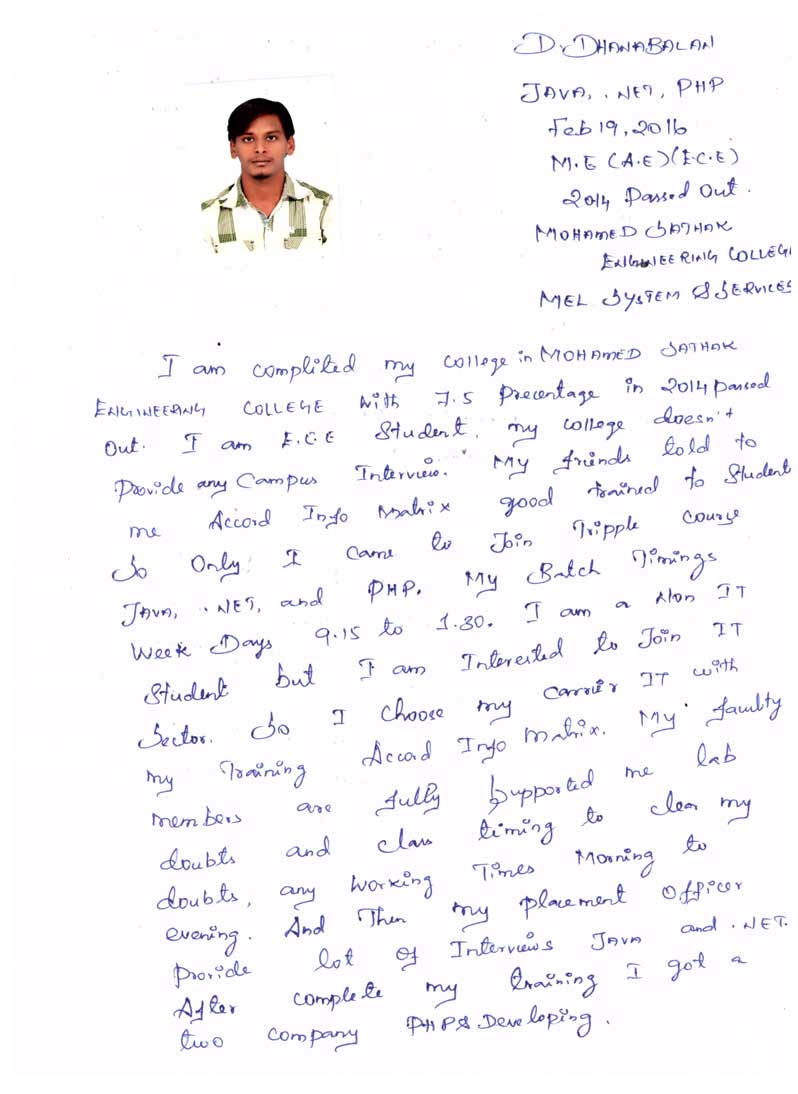 D. DHANABALAN
JAVA, .NET, PHP
Feb 19, 2016
M.E (A.E) (E.C.E)
2014 Passed Out.
MOHAMED SATHAK
ENGINEERING COLLEGE
MEL SYSTEM & SERVICES
I am complited my college in MOHAMED SATHAK
ENGINEERING COLLEGE with 7.5 Precentage in 2014 passed
Out. I am E.C.E Student. my college doesn't
Provide any Campus Interview. My friends told to
me Accord Info Matrix good trained to Student
So Only I came to Join Tripple course
JAVA, .NET, and PHP. My Batch Timings
Week Days 9.15 to 1.30. I am a Non IT
Student but I am Interested to Join IT
Sector. So I choose my carrier IT with
my Training Accord Info Matrix. My faculty
members are fully Supported me lab
doubts and class timing to clear my
doubts, any working Times Morning to
evening. And Then my placement Officer
Provide lot of Interviews JAVA and .NET.
After complete my training I got a
two company PHP & Developing.